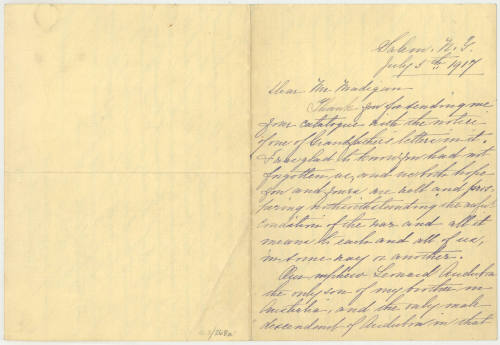 Salem. N.Y.
July 5th 1917
Dear Mr Madigan
Thank you for sending me
your catalogue with the notice
of one of Grandfather's letters in it.
I was glad to know you had not
forgotten us, and we both hope
you and yours are well and pros-
pering notwithstanding the awful
condition of the war and all it
means to each and all of us,
in some way or another.
Our nephew Leonard Audubon
the only son of my brother in
Australia, and the only male
descendant of Audubon in that